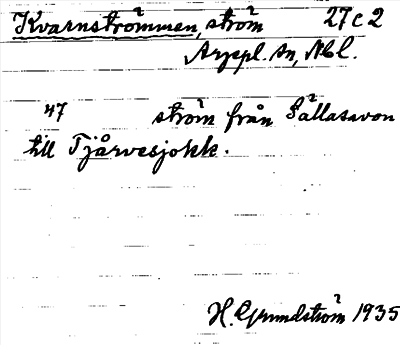 Kvarnströmmen, ström 27c2
Arjepl. sn, Nbl.
47 ström från Sållasavon
till Tjårvesjokk.
H. Grundström 1935